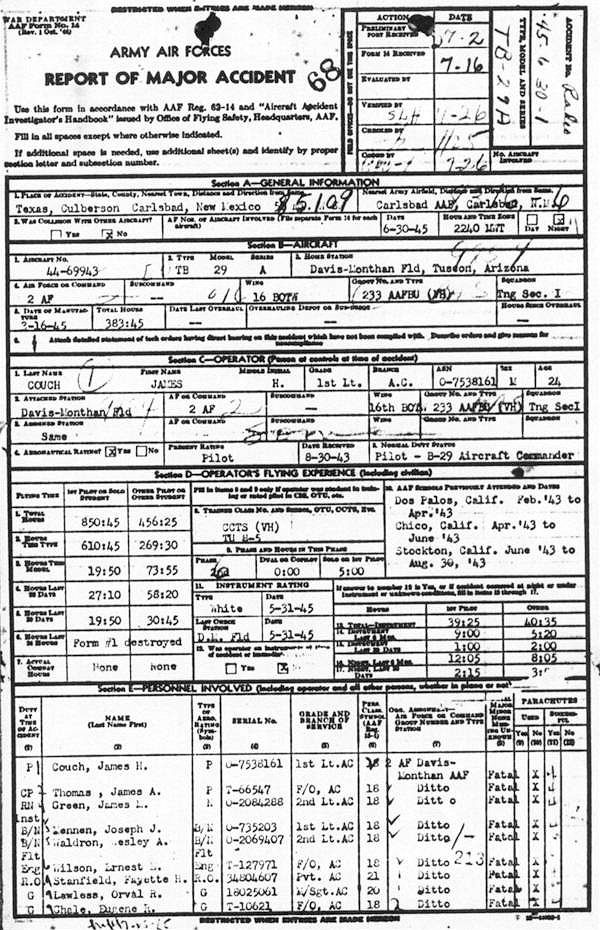 RESTRICTED WHEN ENTRIES ARE MADE HEREON
WAR DEPARTMENT
AAF Form No. 14
(Rev. 1 Oct. '44)
ARMY AIR FORCES
REPORT OF MAJOR ACCIDENT
68
Use this form in accordance with AAF Reg. 62-14 and "Aircraft Accident
Investigator's Handbook" issued by Office of Flying Safety, Headquarters, AAF.
Fill in all spaces except where otherwise indicated.
If additional space is needed, use additional sheet(s) and identify by proper
section letter and subsection number.
ACTION DATE
PRELIMINARY REPORT RECEIVED
FORM 14 RECEIVED 7-16
EVALUATED BY
VERIFIED BY
CHECKED BY
CODED BY 726
ACCIDENT No. 45-6-30-1
TYPE, MODEL AND SERIES TB-29A
NO. AIRCRAFT INVOLVED
SECTION A—GENERAL INFORMATION
1. PLACE OF ACCIDENT—State, County, Nearest Town, Distance and Direction from Same. Nearest Army Airfield, Distance and Direction from Same.
Texas, Culberson Carlsbad, New Mexico Carlsbad AAF, Carlsbad, N.M.
2. WAS COLLISION WITH OTHER AIRCRAFT? AAF NOS. OF AIRCRAFT INVOLVED (File separate Form 14 for each aircraft) DATE HOUR AND TIME ZONE
Yes X No 6-30-45 2240 MWT DAY NIGHT
SECTION B—AIRCRAFT
1. AIRCRAFT NO. 2. TYPE MODEL SERIES 3. HOME STATION
44-69943 TB 29 A Davis-Monthan Fld, Tuscon, Arizona
4. AIR FORCE OR COMMAND SUBCOMMAND WING GROUP NO. AND TYPE SQUADRON
2 AF 16 BOTW 233 AAFBU (VH) Tng Sec. I
5. DATE OF MANUFACTURE TOTAL HOURS DATE LAST OVERHAUL OVERHAULING DEPOT OR SUB-DEPOT HOURS SINCE OVERHAUL
-16-45 383:45
6. Attach detailed statement of tech orders having direct bearing on this accident which have not been complied with. Describe orders and give reasons for noncompliance
SECTION C—OPERATOR (Person at controls at time of accident)
1. LAST NAME FIRST NAME MIDDLE INITIAL GRADE BRANCH ASN SEX AGE
COUCH JAMES H. 1st Lt. A.C. O-7538161 M 24
2. ATTACHED STATION AF OR COMMAND SUBCOMMAND WING GROUP NO. AND TYPE SQUADRON
Davis-Monthan Fld 2 AF 16th BOTW 233 AAFBU (VH) Tng SecI
3. ASSIGNED STATION AF OR COMMAND SUBCOMMAND WING GROUP NO. AND TYPE SQUADRON
Same
4. AERONAUTICAL RATING? X Yes No PRESENT RATING DATE RECEIVED 5. NORMAL DUTY STATUS
Pilot 8-30-43 Pilot - B-29 Aircraft Commander
SECTION D—OPERATOR'S FLYING EXPERIENCE (Including civilian)
FLYING TIME 1ST PILOT OR SOLO STUDENT OTHER PILOT OR OTHER STUDENT
1. TOTAL HOURS 850:45 456:25
2. HOURS THIS TYPE 610:45 269:30
3. HOURS THIS MODEL 19:50 73:55
4. HOURS LAST 90 DAYS 27:10 58:20
5. HOURS LAST 30 DAYS 19:50 30:45
6. HOURS LAST 24 HOURS Form #1 destroyed
7. ACTUAL COMBAT HOURS None None
Fill in Items 8 and 9 only if operator was student in training or rated pilot in CIS, OTU, etc.
8. TRAINEE CLASS NO. AND SCHOOL, OTU, CCTS, Etc.
CCTS (VH)
TU 8-5
9. PHASE AND HOURS IN THIS PHASE
PHASE DUAL OR COPILOT SOLO OR 1ST PILOT
0:00 5:00
10. AAF SCHOOLS PREVIOUSLY ATTENDED AND DATES
Dos Palos, Calif. Feb.'43 to
Apr.'43
Chico, Calif. Apr.'43 to
June '43
Stockton, Calif. June '43 to
Aug. 30, '43
11. INSTRUMENT RATING
TYPE DATE
White 5-31-45
LAST CHECK STATION DATE
D.M. Fld 5-31-45
Yes X
If answer to number 12 is Yes, or if accident occurred at night or under instrument or unknown conditions, fill in items 13 through 17.
HOURS 1ST PILOT OTHER
13. TOTAL—INSTRUMENT 39:25 40:35
14. INSTRUMENT LAST 6 MOS. 9:00 5:20
15. INSTRUMENT LAST 30 DAYS 1:00 2:00
16. NIGHT, LAST 6 MOS. 12:05 8:05
17. NIGHT, LAST 30 DAYS 2:15
SECTION E—PERSONNEL INVOLVED (Including operator and all other persons, whether in plane or not)
DUTY AT TIME OF ACCIDENT NAME (Last Name First) TYPE OF AERO. RATING (Symbols) SERIAL NO. GRADE AND BRANCH OF SERVICE PERS. CLASS. SYMBOL (AAF Reg. 15-1) ORG. ASSIGNMENT AIR FORCE OR COMMAND GROUP NUMBER AND TYPE STATION MAJOR MINOR NONE MISSING UNKNOWN PARACHUTES USED SUCCESSFUL
(1) (2) (3) (4) (5) (6) (7) (8) (9) (10) (11) (12)
P Couch, James H. P O-7538161 1st Lt.AC 18 2 AF Davis-
Monthan AAF Fatal X
CP Thomas, James A. P T-66547 F/O, AC 18 Ditto Fatal X
RN Green, James N O-2084288 2nd Lt.AC 18 Ditto Fatal X
Inst
B/N Kennen, Joseph J. B/N O-735203 1st Lt.AC 18 Ditto Fatal X
B/N Waldron, Wesley A. B/N O-2069407 2nd Lt.AC 18 Ditto Fatal X
Flt Flt
Eng Wilson, Ernest Eng T-127971 F/O, AC 18 Ditto 213 Fatal X
R.O. Stanfield, Fayette H. R.O. 34804607 Pvt. AC 21 Ditto Fatal X
G Lawless, Orval R. G 18025061 M/Sgt.AC 20 Ditto Fatal X
G Ghale, Eugene R. G T-10621 F/O, AC 18 Ditto Fatal X
RESTRICTED WHEN ENTRIES ARE MADE HEREON